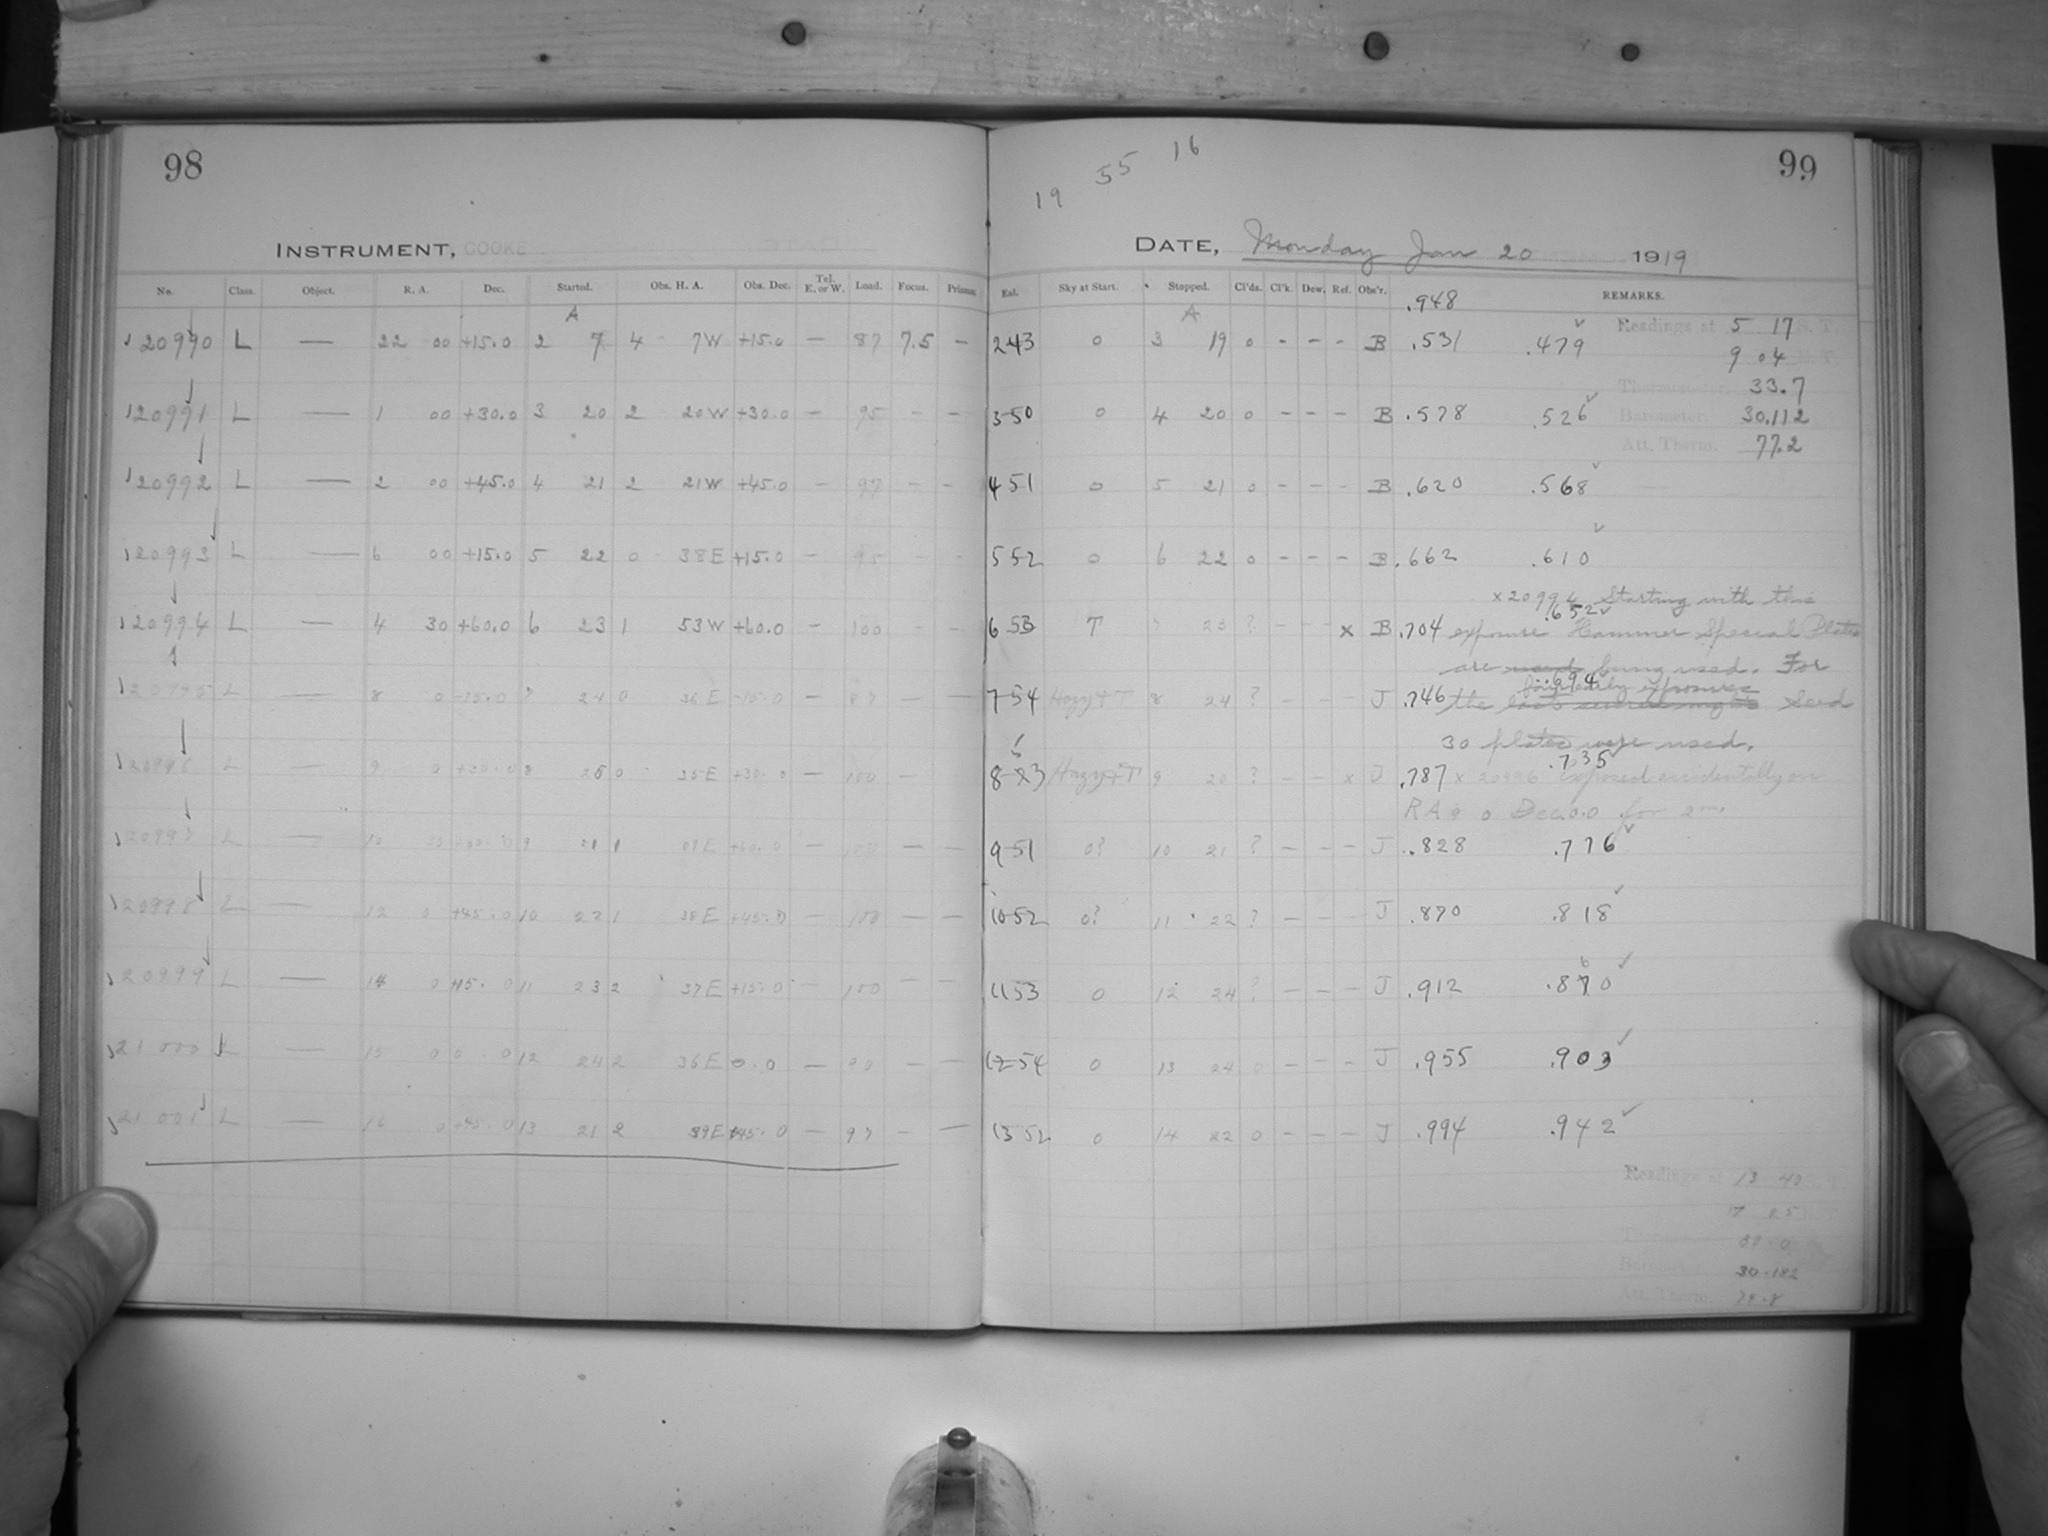 98
INSTRUMENT, COOKE
No. Class. Object. R. A. Dec. Started. Obs. H. A. Obs. Dec. Tel. E. or W. Load. Focus. Prisms.
A
20990 L — 22 00 +15.0 2 7 4 7W +15.0 — 87 7.5 —
20991 L — 1 00 +30.0 3 20 2 20W +30.0 — 95 — —
20992 L — 2 00 +45.0 4 21 2 21W +45.0 — 97 — —
20993 L — 6 00 +15.0 5 22 0 38E +15.0 — 95 — —
20994 L — 4 30 +60.0 6 23 1 53W +60.0 — 100 — —
20995 L — 8 0 -15.0 7 24 0 36E -15.0 — 87 — —
20996 L — 9 0 +30.0 8 25 0 35E +30.0 — 100 — —
20997 L — +60.0 9 21 1 09E +60.0 — 100 — —
20998 L — 12 0 +45.0 10 22 1 38E +45.0 — 100 — —
20999 L — 14 0 +15.0 11 23 2 37E +15.0 — 100 — —
21000 L — 15 0 0.0 12 24 2 36E 0.0 — 90 — —
21001 L — 16 0 +45.0 13 21 2 39E +45.0 — 97 — —
99
19 55 16
DATE, Monday Jan 20 1919
Sky at Start. Stopped. Cl'ds. Cl'k. Dew. Ref. Obs'r. REMARKS.
.948
A
243 0 3 19 0 - - - B .531 .479
Readings at 5 17 S. T.
9 04
Thermometer. 33.7
350 0 4 20 0 - - - B .578 .526
Barometer. 30.112
Att. Therm. 77.2
451 0 5 21 0 - - - B .620 .568
552 0 6 22 0 - - - B .662 .610
x 20994 Starting with this
653 T 7 23 ? - - x B .704 .652 exposure Hammer Special Plates
are used being used. For
four early exposures
754 Hazy+T 8 24 ? - - - J .746 .694 the last several nights Seed
30 plates were used.
8 53 Hazy+T 9 20 ? - - x J .787 .735 x 20996 exposed accidentally on
RA 9 0 Dec. 0.0 for 2m.
951 0? 10 21 ? - - - J .828 .776
1052 0? 11 22 ? - - - J .870 .818
1153 0 12 24 ? - - - J .912 .860
1254 0 13 24 0 - - - J .955 .903
1352 0 14 22 0 - - - J .994 .942
Readings at 13 40 S. T.
17 05
Thermometer 37.0
Barometer 30.182
Att. Therm.